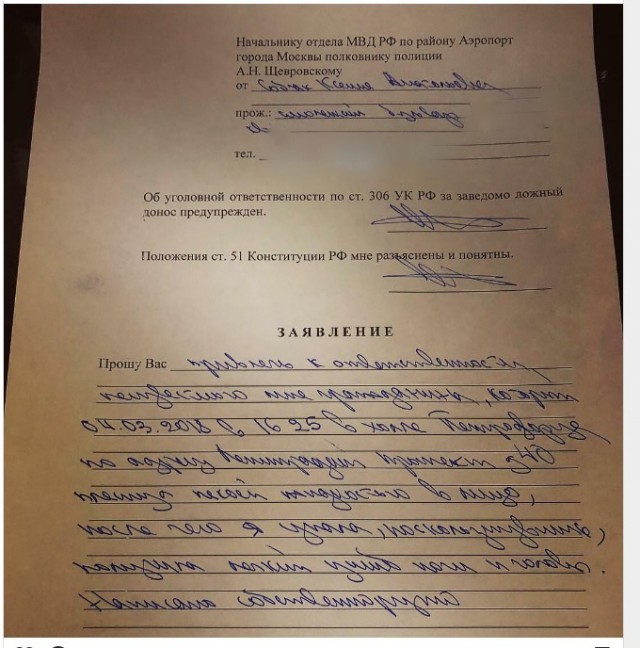 Начальнику отдела МВД РФ по району Аэропорт
города Москвы полковнику полиции
А.Н. Щевровскому
от Собчак Ксения Анатольевна
прож.: бульвар
тел.
Об уголовной ответственности по ст. 306 УК РФ за заведомо ложный
донос предупрежден.
Положения ст. 51 Конституции РФ мне разъяснены и понятны.
ЗАЯВЛЕНИЕ
Прошу Вас привлечь к ответственности
неизвестного мне гражданина, который
04.03.2018 в 16 25 в холле
по адресу Ленинградский проспект
в лицо,
после чего я упала, поскользнувшись,
получила легкий ушиб ноги и головы.
Написано собственноручно